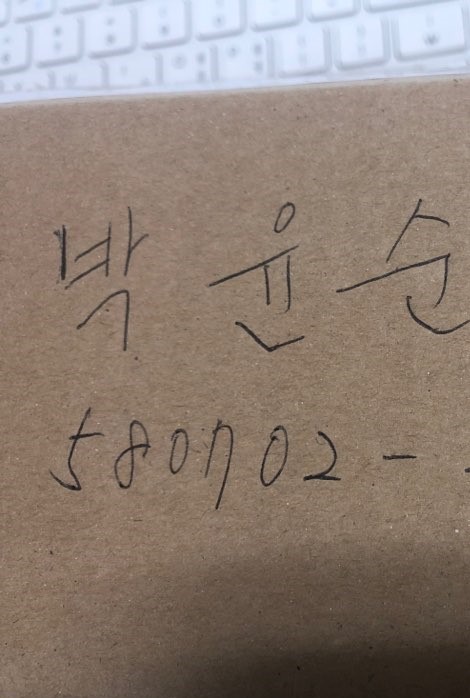 박윤순
580702-